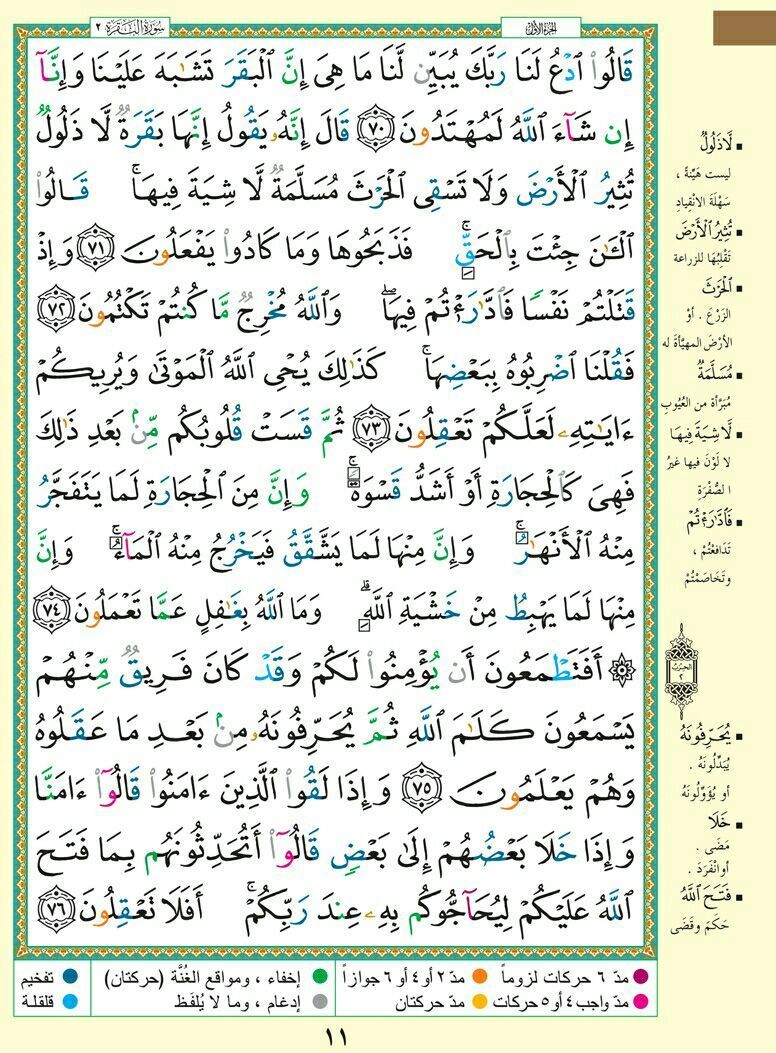 سُورَةُ البَقَرَة ٢
الجُزءُ الأوّل
قَالُوا۟ ٱدْعُ لَنَا رَبَّكَ يُبَيِّن لَّنَا مَا هِىَ إِنَّ ٱلْبَقَرَ تَشَـٰبَهَ عَلَيْنَا وَإِنَّآ
إِن شَآءَ ٱللَّهُ لَمُهْتَدُونَ ﴿٧٠﴾ قَالَ إِنَّهُۥ يَقُولُ إِنَّهَا بَقَرَةٌ لَّا ذَلُولٌ
تُثِيرُ ٱلْأَرْضَ وَلَا تَسْقِى ٱلْحَرْثَ مُسَلَّمَةٌ لَّا شِيَةَ فِيهَا ۚ قَـالُوا۟
ٱلْـَٔـٰنَ جِئْتَ بِٱلْحَقِّ ۚ فَذَبَحُوهَا وَمَا كَادُوا۟ يَفْعَلُونَ ﴿٧١﴾ وَإِذْ
قَتَلْتُمْ نَفْسًا فَٱدَّٰرَْٰٔتُمْ فِيهَا ۖ وَٱللَّهُ مُخْرِجٌ مَّا كُنتُمْ تَكْتُمُونَ ﴿٧٢﴾
فَقُلْنَا ٱضْرِبُوهُ بِبَعْضِهَا ۚ كَذَٰلِكَ يُحْىِ ٱللَّهُ ٱلْمَوْتَىٰ وَيُرِيكُمْ
ءَايَـٰتِهِۦ لَعَلَّكُمْ تَعْقِلُونَ ﴿٧٣﴾ ثُمَّ قَسَتْ قُلُوبُكُم مِّنۢ بَعْدِ ذَٰلِكَ
فَهِىَ كَٱلْحِجَارَةِ أَوْ أَشَدُّ قَسْوَةً ۚ وَإِنَّ مِنَ ٱلْحِجَارَةِ لَمَا يَتَفَجَّرُ
مِنْهُ ٱلْأَنْهَـٰرُ ۚ وَإِنَّ مِنْهَا لَمَا يَشَّقَّقُ فَيَخْرُجُ مِنْهُ ٱلْمَآءُ ۚ وَإِنَّ
مِنْهَا لَمَا يَهْبِطُ مِنْ خَشْيَةِ ٱللَّهِ ۗ وَمَا ٱللَّهُ بِغَـٰفِلٍ عَمَّا تَعْمَلُونَ ﴿٧٤﴾
۞ أَفَتَطْمَعُونَ أَن يُؤْمِنُوا۟ لَكُمْ وَقَدْ كَانَ فَرِيقٌ مِّنْهُمْ
يَسْمَعُونَ كَلَـٰمَ ٱللَّهِ ثُمَّ يُحَرِّفُونَهُۥ مِنۢ بَعْدِ مَا عَقَلُوهُ
وَهُمْ يَعْلَمُونَ ﴿٧٥﴾ وَإِذَا لَقُوا۟ ٱلَّذِينَ ءَامَنُوا۟ قَالُوٓا۟ ءَامَنَّا
وَإِذَا خَلَا بَعْضُهُمْ إِلَىٰ بَعْضٍ قَالُوٓا۟ أَتُحَدِّثُونَهُم بِمَا فَتَحَ
ٱللَّهُ عَلَيْكُمْ لِيُحَآجُّوكُم بِهِۦ عِندَ رَبِّكُمْ ۚ أَفَلَا تَعْقِلُونَ ﴿٧٦﴾
▪ لَّا ذَلُولٌ
ليست هَيِّنةً ،
سَهْلَةَ الانْقِيادِ
▪ تُثِيرُ ٱلْأَرْضَ
تَقْلِبُهَا للزراعة
▪ ٱلْحَرْثَ
الزَّرْعَ . أوْ
الأرْضَ المهيَّأةَ له
▪ مُسَلَّمَةٌ
مُبَرَّأة من العُيُوبِ
▪ لَّا شِيَةَ فِيهَا
لا لَوْنَ فيها غيرُ
الصُّفْرَةِ
▪ فَٱدَّٰرَْٰٔتُمْ
تَدَافَعْتُمْ ،
وتَخَاصَمْتُمْ
الحِزْبُ
٢
▪ يُحَرِّفُونَهُ
يُبَدِّلُونَهُ .
أو يُؤَوِّلُونَهُ
▪ خَلَا
مَضَى .
أو انْفَرَدَ .
▪ فَتَحَ ٱللَّهُ
حَكَمَ وقَضَى
مدّ ٦ حركات لزوماً
مدّ ٢ أو ٤ أو ٦ جوازاً
إخفاء ، ومواقع الغُنَّة (حركتان)
تفخيم
مدّ واجب ٤ أو ٥ حركات
مدّ حركتان
إدغام ، وما لا يُلفَظ
قلقلة
١١